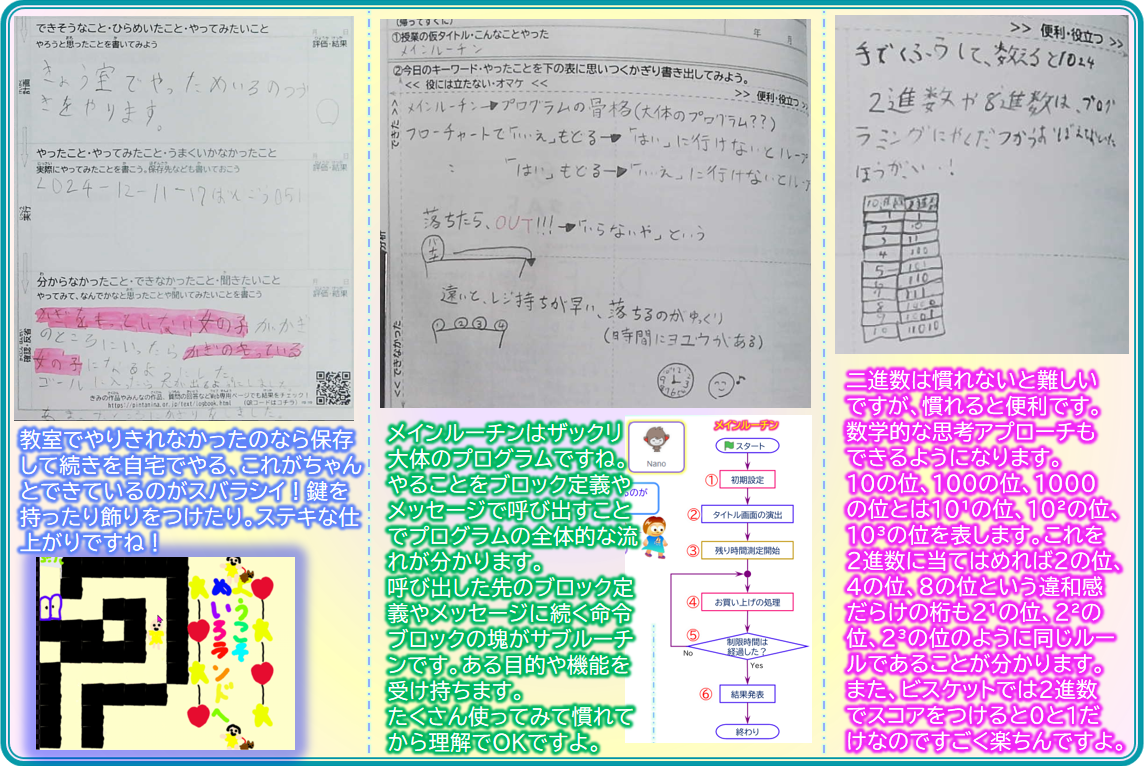 できそうなこと・ひらめいたこと・やってみたいこと
やろうと思ったことを書いてみよう
評価・結果
計画
きょう室でやっためいろのつづ
きをやります。
やったこと・やってみたこと・うまくいかなかったこと
実際にやってみたことを書こう。保存先なども書いておこう
評価・結果
実行
2024-12-11-17
分からなかったこと・できなかったこと・聞きたいこと
やってみて、なんでかなと思ったことや聞いてみたいことを書こう
評価・結果
確認・反省
かぎをもっていない女の子がかぎ
のところにいったらかぎのもっている
女の子になるようにした。
きみの作品やみんなの作品、質問の回答などWeb専用ページでも結果をチェック！
教室でやりきれなかったのなら保存
して続きを自宅でやる、これがちゃん
とできているのがスバラシイ！鍵を
持ったり飾りをつけたり。ステキな仕
上がりですね！
ようこそ
めいろランドへ
(帰ってすぐに)
①授業の仮タイトル・こんなことやった
年 月
メインルーチン
②今日のキーワード・やったことを下の表に思いつくかぎり書き出してみよう。
<< 役には立たない・オマケ <<
>> 便利・役立つ >>
できた >>
メインルーチン→プログラムの骨格(大体のプログラム??)
フローチャートで「いいえ」もどる→「はい」に行けないとループ
: 「はい」もどる→「いいえ」に行けないとループ
落ちたら、OUT!!!→「いらないや」という
遠いと、レジ持ちが早い、落ちるのがゆっくり
(時間にヨユウがある)
① ② ③ ④
<< できなかった
メインルーチンはザックリ
大体のプログラムですね。
やることをブロック定義や
メッセージで呼び出すこと
でプログラムの全体的な流
れが分かります。
呼び出した先のブロック定
義やメッセージに続く命令
ブロックの塊がサブルーチ
ンです。ある目的や機能を
受け持ちます。
たくさん使ってみて慣れて
から理解でOKですよ。
Nano
るのが
メインルーチン
スタート
① 初期設定
② タイトル画面の演出
③ 残り時間測定開始
④ お買い上げの処理
⑤ 制限時間は
経過した？
No
Yes
⑥ 結果発表
終わり
>> 便利・役立つ >>
手でくふうして、数えると1024
2進数や8進数は、プログ
ラミングにやくだつからおぼえなおした
ほうが、いい！
10進数 2進数
二進数は慣れないと難しい
ですが、慣れると便利です。
数学的な思考アプローチも
できるようになります。
10の位、100の位、1000
の位とは10¹の位、10²の位、
10³の位を表します。これを
2進数に当てはめれば2の位、
4の位、8の位という違和感
だらけの桁も2¹の位、2²の
位、2³の位のように同じルー
ルであることが分かります。
また、ビスケットでは2進数
でスコアをつけると0と1だ
けなのですごく楽ちんですよ。